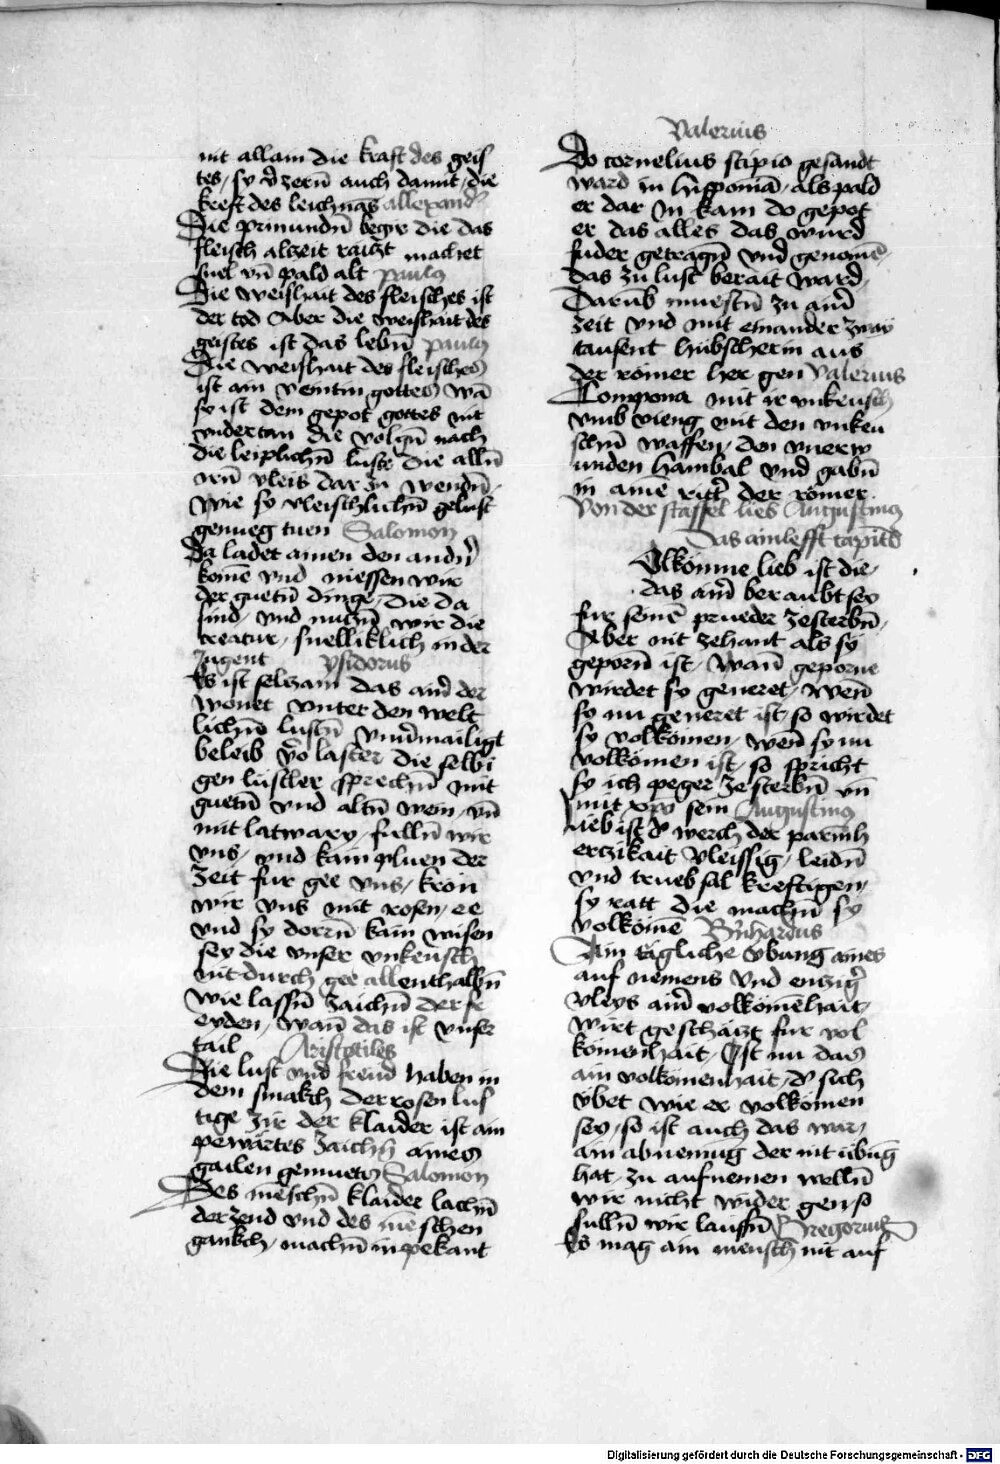 nit allain die kraft des geis
tes / sy v̓zern̄ auch damit / die
kreft des leichnās allexand̓
Die primundn̄ begir die das
fleisch alzeit raitzt machet
snel vn̄ pald alt paulꝯ
Die weishait des fleisches ist
der tod Aber die weishait des
geistes ist das lebn̄ paulꝯ
Die weishait des fleisches
ist ain veintin gottes wā
sy ist dem gepot gottes nit
vndertan die volgn̄ nach
die leiplichn̄ luste die alln̄
irn̄ vleis dar zu wendn̄
wie sy vleischlichn̄ gelust
genueg tuen Salomon
Da ladet ainen den andn̓
komē vnd niessen wir
der guetn̄ dinge / die da
sind / vnd nuczn̄ wir die
creatur / snelliklich in der
Jugent ysidorus
Es ist selczam das ain̓ der
wonet vnter den welt
lichn̄ lustn̄ vnu̓mailigt
beleib vō laster die selbi
gen luscher sprechn̄ mit
guetn̄ vnd altn̄ wein / vn̄
mit latwary / fulln̄ wir
vns / vnd kain pluen der
zeit fur gee vns / kron
wir vns mit rosen / ee
vnd sy dorrn̄ kain wisen
sey die vnser vnkeusch
nit durch gee allenthalbn̄
wie lassn̄ zaichn̄ der fr
eyden / wan̄ das ist vnser
tail Aristotiles
Die lust vnd freud haben in
dem smakch der rosen lus
tige zir der klaider ist ain
pewartes zaichn̄ aines
gailen gemuets Salomon
Des mēschn̄ klaider lachn̄
der zend vnd des mēschen
gankch / machn̄ in pekant
Valerius
Do cornelius scipio gesandt
ward in hisponiā / als pald
er dar in kam do gepot
er das alles das wurd
fuder getragn̄ vnd genomē
das zu lust berait ward
Darūb muestn̄ zu ain̓
zeit vnd mit einander zway
tausent hubscherin aus
der romer her gen Valerius
Compona mit ir vnkeusch
vmb vieng mit den vnkeu
schn̄ waffen / den vnerw
unden hanibal vnd gabn̄
in ainē ritt̓ der romer
Von der staffel lies Augustinꝯ
Das ainlefft capitl̄
Volkōmne lieb ist die
das ain̓ beraubt sey
fur seinē prueder zesterbn̄
Aber nit zehant als sy
geporn̄ ist / wan̄ geporne
wirdet sy generet / wen̄
sy nu generet ist / so wirdet
sy volkomen / wen̄ sy nu
volkomen ist / so spricht
sy ich peger zesterbn̄ vn̄
mit xpo̅ sein Augustinꝯ
Lieb ist d̓ werch der parmh
erczikait vleissig / leidn̄
vnd truebsal kreftigen /
sy ratt die machn̄ sy
volkomē Bn̓hardus
Ain tägliche vbung aines
auf nemens vnd enzig̓
vleys ain̓ volkomēhait
wirt geschäczt fur vol
komenhait / Ist nu das
ain volkomenhait / d̓ sich
vbet wie er volkomen
sey / so ist auch das war /
ain abnemug der nit ubūg
hat zu aufnemen welln̄
wir nicht wider gen so
sulln̄ wir lauffn̄ Gregoriꝰ
Es mag ain mensch nit auf
Digitalisierung gefördert durch die Deutsche Forschungsgemeinschaft - DFG